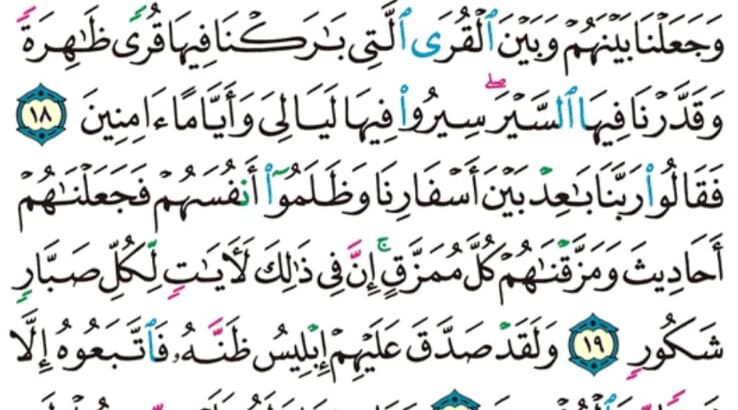 وَجَعَلْنَا بَيْنَهُمْ وَبَيْنَ ٱلْقُرَى ٱلَّتِي بَٰرَكْنَا فِيهَا قُرًى ظَٰهِرَةً
وَقَدَّرْنَا فِيهَا ٱلسَّيْرَ ۖ سِيرُوا۟ فِيهَا لَيَالِىَ وَأَيَّامًا ءَامِنِينَ ١٨
فَقَالُوا۟ رَبَّنَا بَٰعِدْ بَيْنَ أَسْفَارِنَا وَظَلَمُوٓا۟ أَنفُسَهُمْ فَجَعَلْنَٰهُمْ
أَحَادِيثَ وَمَزَّقْنَٰهُمْ كُلَّ مُمَزَّقٍ ۚ إِنَّ فِى ذَٰلِكَ لَءَايَٰتٍ لِّكُلِّ صَبَّارٍ
شَكُورٍ ١٩ وَلَقَدْ صَدَّقَ عَلَيْهِمْ إِبْلِيسُ ظَنَّهُۥ فَٱتَّبَعُوهُ إِلَّا